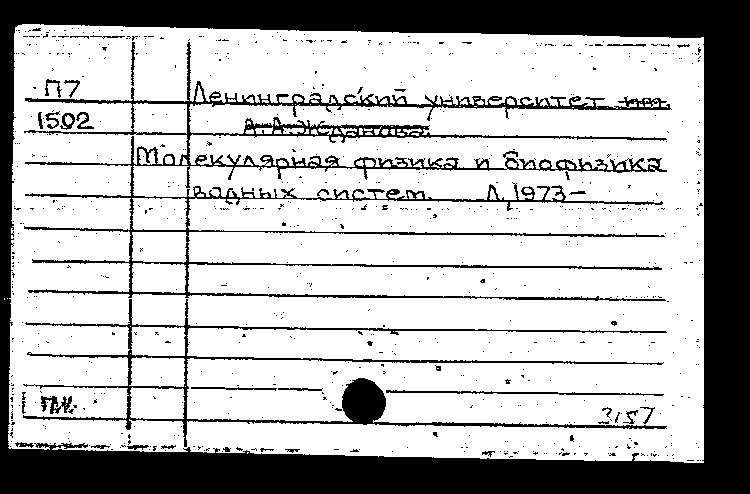 П7 Ленинградский университет им.
1502 А.А. Жданова.
Молекулярная физика и биофизика
водных систем. Л, 1973-
3157